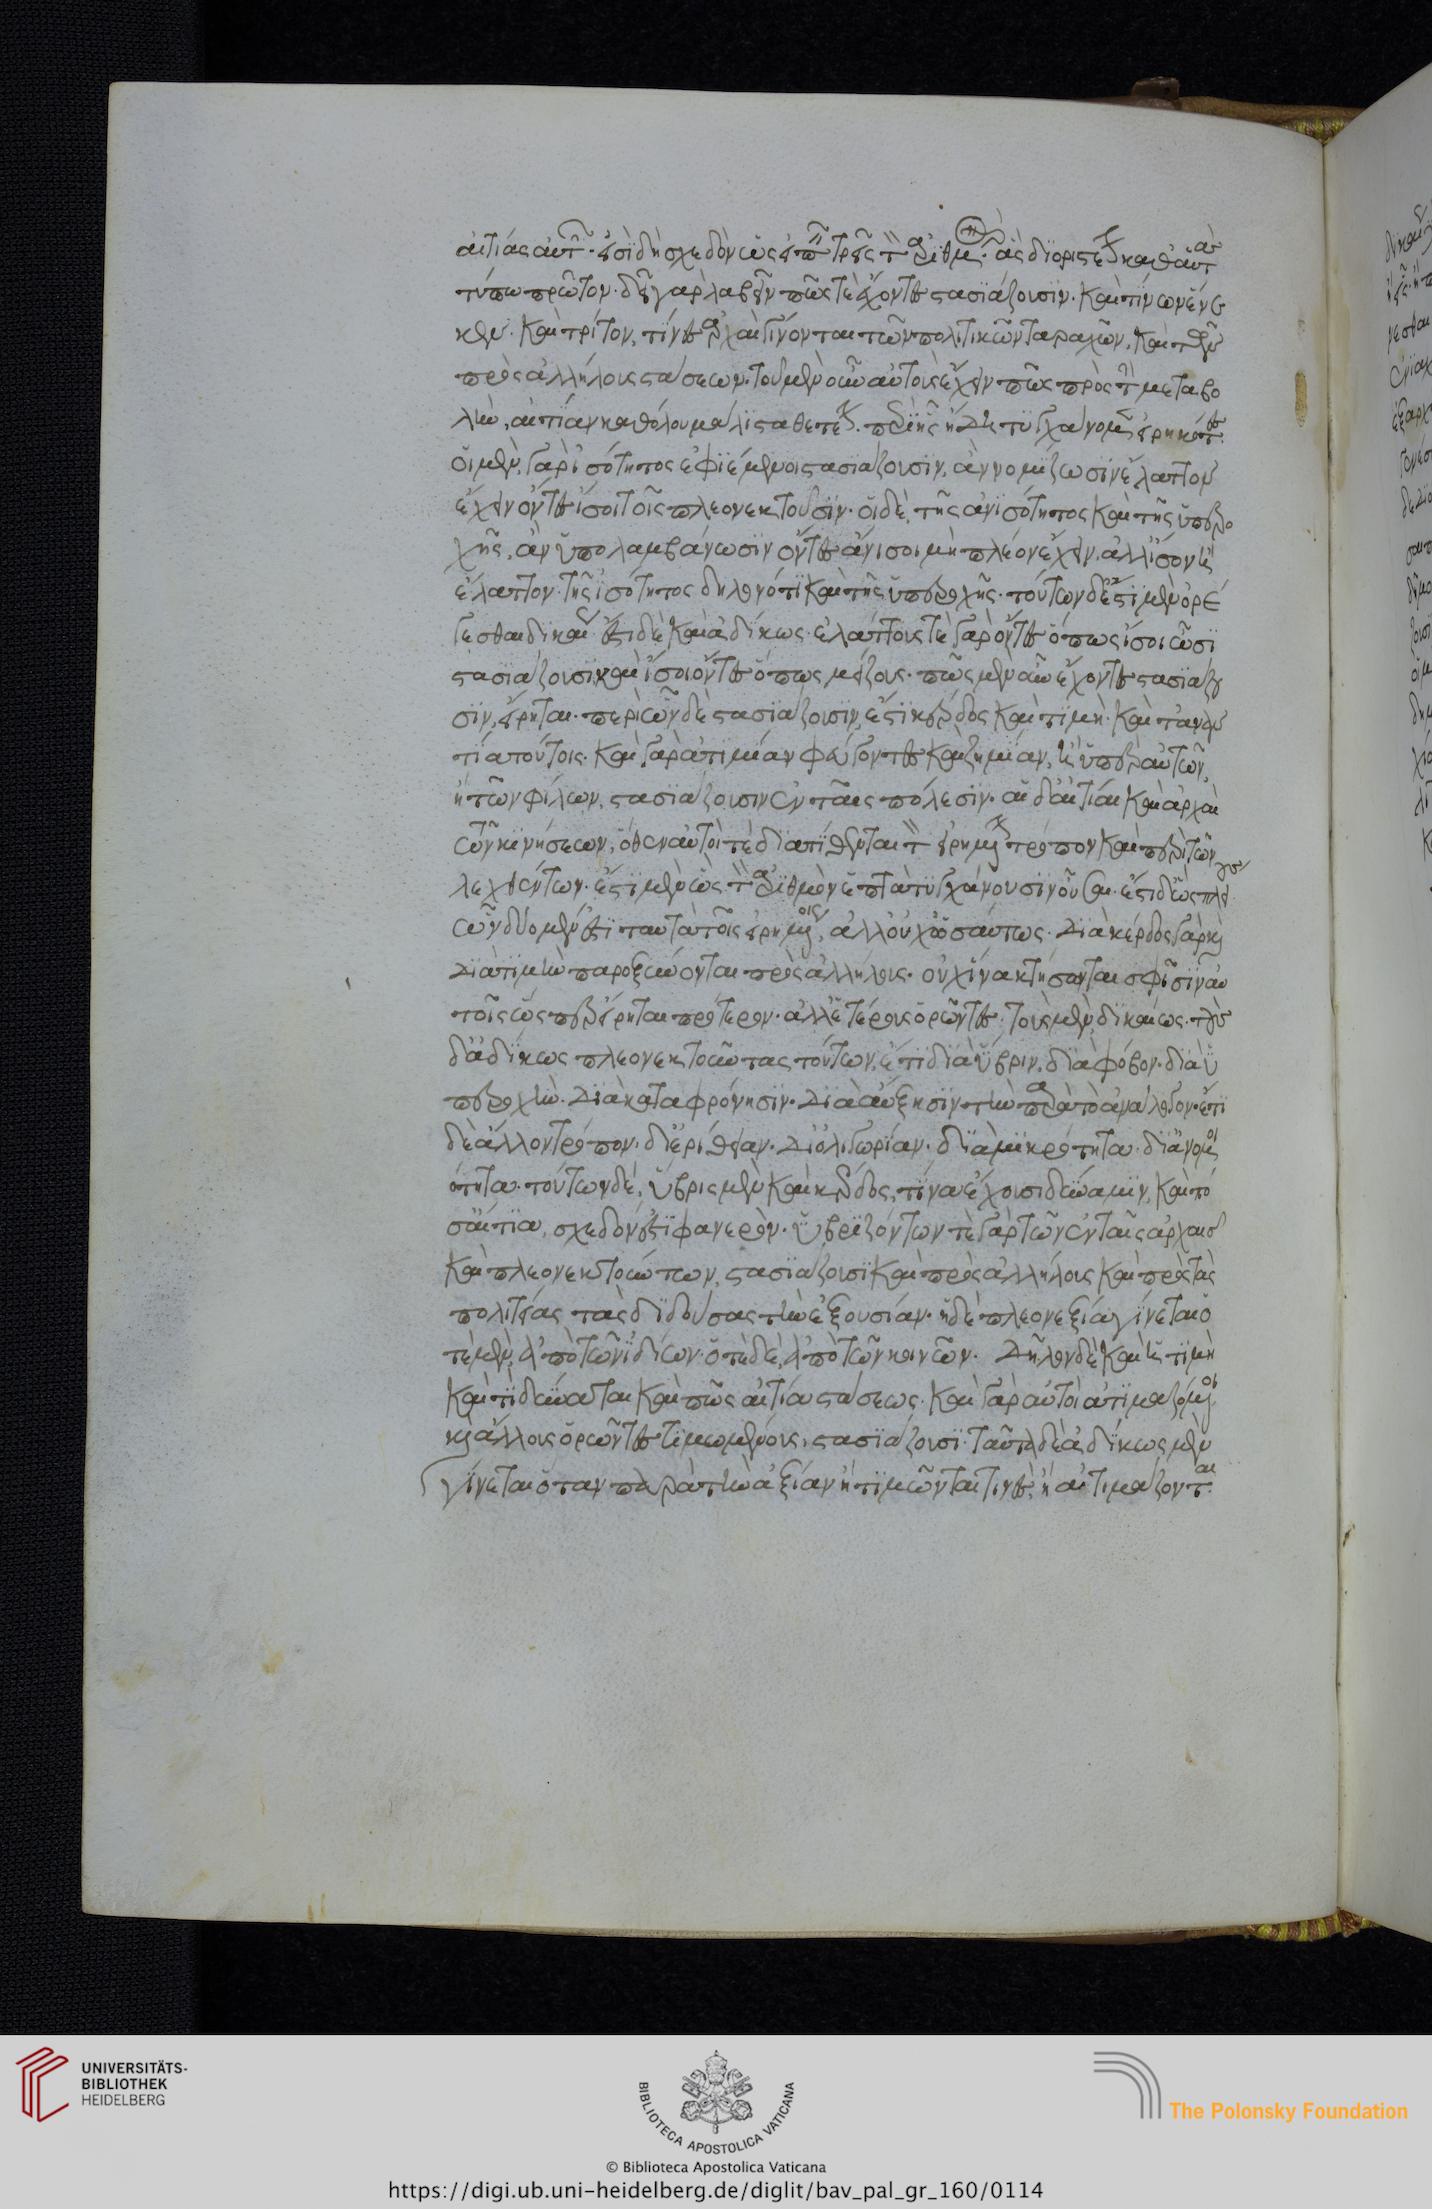 αἰτίας αὐτῶν. εἰσὶ δὴ σχεδὸν ὡς εἰπεῖν τρεῖς τὸν ἀριθμὸν. ἃς διοριστέον καθ' αὑτὰς
τύπω πρῶτον. δεῖ γὰρ λαβεῖν πῶς τὲ ἔχοντες στασιάζουσιν. καὶ τίνων ἕνε
κεν. καὶ τρίτον, τίνες ἀρχαὶ γίνονται τῶν πολιτικῶν ταραχῶν, καὶ τῶν
πρὸς ἀλλήλους στάσεων. τοῦ μὲν οὖν αὐτοὺς ἔχειν πῶς πρὸς τὴν μεταβο
λὴν, αἰτίαν καθόλου μάλιστα θετέον. περὶ ἧς ἤδη τυγχάνομεν εἰρηκότες.
οἱ μὲν γὰρ ἰσότητος ἐφιέμενοι στασιάζουσιν, ἀν νομίζωσιν ἔλαττον
ἔχειν ὄντες ἴσοι τοῖς πλεονεκτοῦσιν. οἱ δὲ, τῆς ἀνισότητος καὶ τῆς ὑπερο
χῆς, ἀν ὑπολαμβάνωσιν ὄντες ἄνισοι μὴ πλέον ἔχειν, ἀλλ' ἴσον ἢ
ἔλαττον. τῆς ἰσότητος δηλονότι καὶ τῆς ὑπεροχῆς. τούτων δ' ἔστι μὲν ὀρέ
γεσθαι δικαίως. ἔστι δὲ καὶ ἀδίκως. ἐλάττους τὲ γὰρ ὄντες ὅπως ἴσοι ὦσι
στασιάζουσι, καὶ ἴσοι ὄντες ὅπως μείζους. πῶς μὲν οὖν ἔχοντες στασιάζου
σιν, εἴρηται. περὶ ὧν δὲ στασιάζουσιν, ἐστὶ κέρδος καὶ τιμὴ. καὶ τἀναν
τία τούτοις. καὶ γὰρ ἀτιμίαν φεύγοντες καὶ ζημίαν, ἢ ὑπὲρ αὑτῶν,
ἢ τῶν φίλων, στασιάζουσιν ἐν ταῖς πόλεσιν. αἱ δ' αἰτίαι καὶ ἀρχαὶ
τῶν κινήσεων, ὅθεν αὐτοὶ τὲ διατίθενται τὸν εἰρημένον τρόπον καὶ περὶ τῶν
λεχθέντων. ἔστι μὲν ὡς τὸν ἀριθμὸν ἑπτὰ τυγχάνουσιν οὖσαι. ἔστι δ' ὡς πλείους
ὧν δύο μέν ἐστι ταυτὰ τοῖς εἰρημένοις, ἀλλ' οὐχ ὡσαύτως. διὰ κέρδος γὰρ καὶ
διὰ τιμὴν παροξύνονται πρὸς ἀλλήλους. οὐχ ἵνα κτήσωνται σφίσιν αὐ
τοῖς ὥσπερ εἴρηται πρότερον. ἀλλ' ἑτέρους ὁρῶντες. τοὺς μὲν δικαίως. τοὺς
δ' ἀδίκως πλεονεκτοῦντας τούτων, ἔτι διὰ ὕβριν. διὰ φόβον. διὰ ὑ
περοχὴν. διὰ καταφρόνησιν. διὰ αὔξησιν τὴν παρὰ τὸ ἀνάλογον. ἔτι
δὲ ἄλλον τρόπον. δι' ἐρίθειαν. δι' ὀλιγωρίαν. διὰ μικρότητα. δι' ἀνομοι
ότητα. τούτων δὲ, ὕβρις μὲν καὶ κέρδος, τίνα ἔχουσι δύναμιν, καὶ πῶ
σ αἴτια, σχεδόν ἐστι φανερὸν. ὑβριζόντων τὲ γὰρ τῶν ἐν ταῖς ἀρχαῖς
καὶ πλεονεκτούντων, στασιάζουσι καὶ πρὸς ἀλλήλους καὶ πρὸς τὰς
πολιτείας τὰς διδούσας τὴν ἐξουσίαν. ἡ δὲ πλεονεξία γίνεται ὁ
τὲ μὲν, ἀπὸ τῶν ἰδίων. ὁτὲ δὲ, ἀπὸ τῶν κοινῶν. δῆλον δὲ καὶ ἡ τιμὴ
καὶ τί δύναται καὶ πῶς αἰτία στάσεως. καὶ γὰρ αὐτοὶ ἀτιμαζόμενοι
καὶ ἄλλους ὁρῶντες τιμωμένους, στασιάζουσι. ταῦτα δὲ ἀδίκως μὲν
γίνεται ὅταν παρὰ τὴν ἀξίαν ἢ τιμῶνται τινὲς, ἢ ἀτιμάζονται.
UNIVERSITÄTS-
BIBLIOTHEK
HEIDELBERG
BIBLIOTECA APOSTOLICA VATICANA
The Polonsky Foundation
© Biblioteca Apostolica Vaticana
https://digi.ub.uni-heidelberg.de/diglit/bav_pal_gr_160/0114